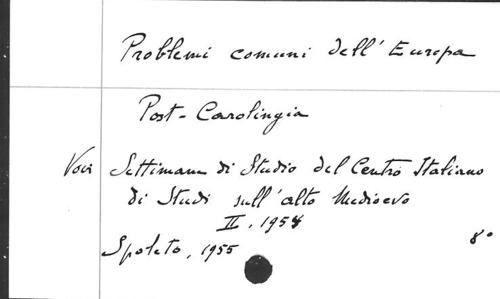 Problemi comuni dell'Europa
Post-Carolingia
Voir Settimane di Studio del Centro Italiano
di Studi sull'alto Medioevo
II, 1954
Spoleto, 1955 8°